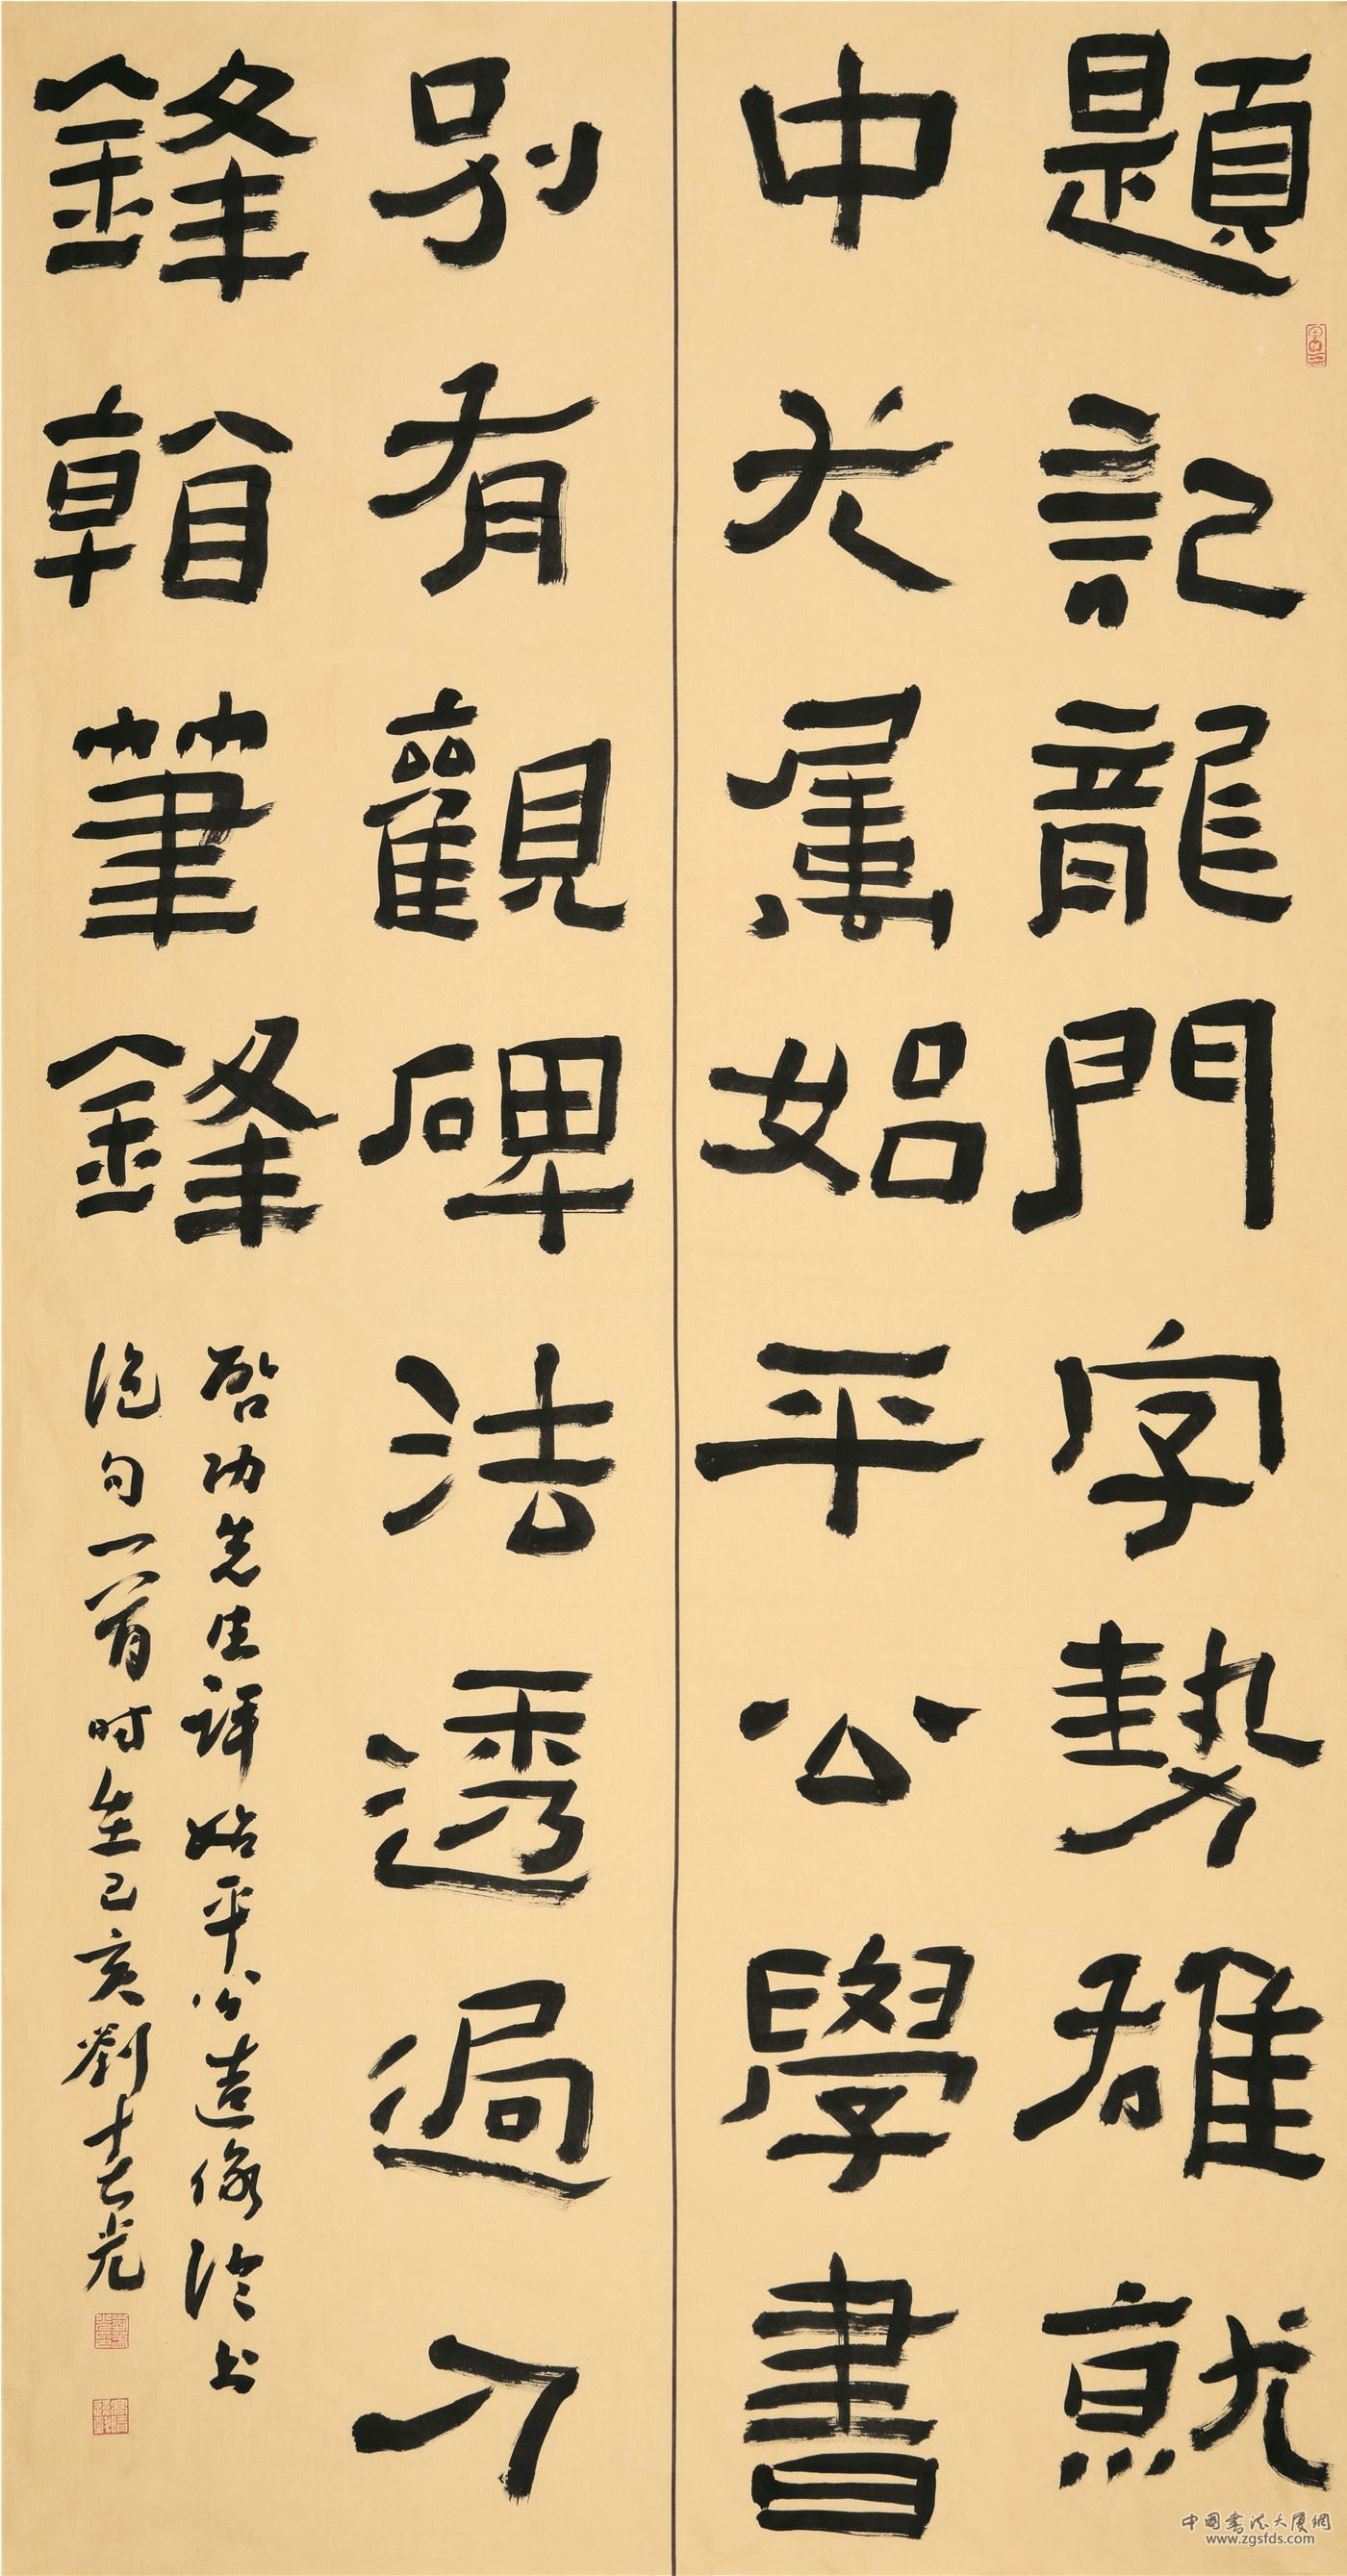 題記龍門字勢雄就
中尤属始平公學書
別有觀碑法透過刀
鋒看筆鋒
啓功先生評始平公造像論书
絕句一首时在己亥劉光
中國書法大廈網
www.zgsfds.com